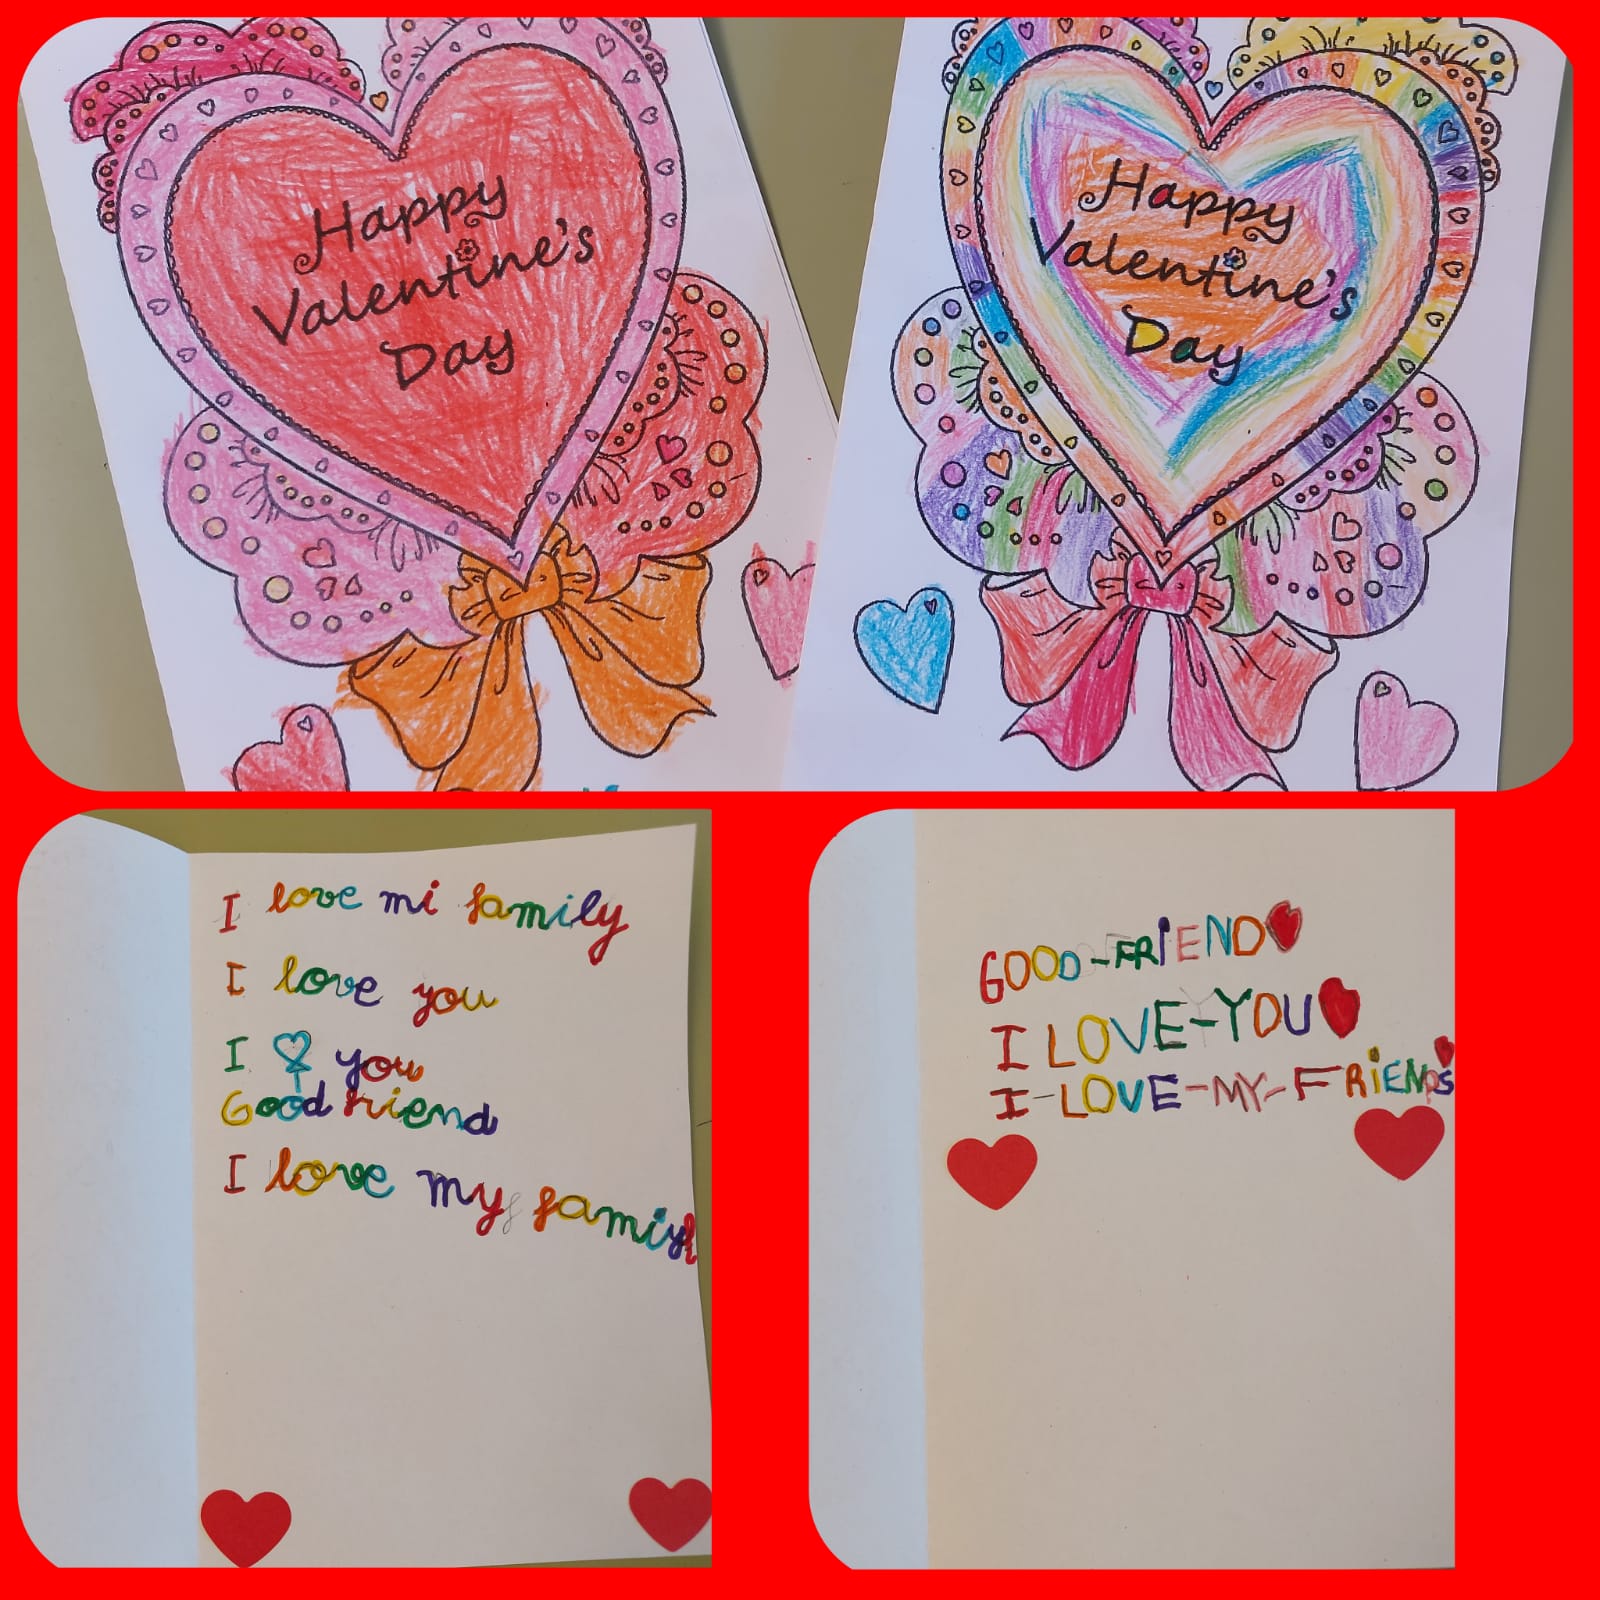 Happy
Valentine's
Day
Happy
Valentine's
Day
I love mi family
I love you
I you
Good friend
I love my
GOOD-FRIEND
I LOVE-YOU
I-LOVE-MY-FRIENDS